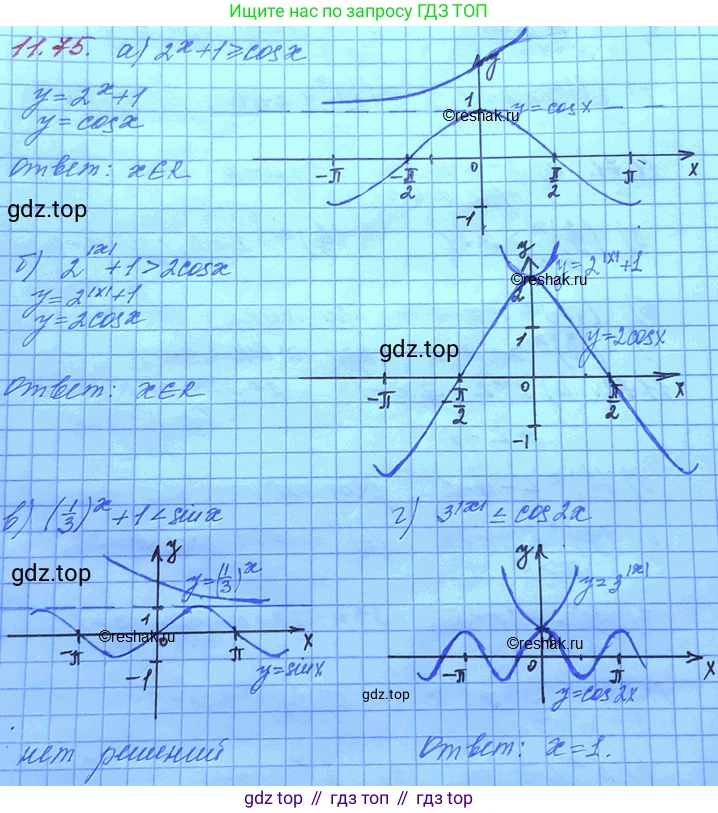 Ищите нас по запросу ГДЗ ТОП
11.75. а) 2^x+1≥cosx
y=2^x+1
y=cosx
ответ: x∈R
y
1
y=cosx
©reshak.ru
-π
-π/2
0
π/2
π
x
-1
gdz.top
б) 2^|x|+1>2cosx
y=2^|x|+1
y=2cosx
ответ: x∈R
y
y=2^|x|+1
©reshak.ru
2
1
y=2cosx
gdz.top
-π
-π/2
0
π/2
x
-1
в) (1/3)^x+1<sinx
y
y=(1/3)^x
gdz.top
1
©reshak.ru
-π
0
π
x
-1
y=sinx
нет решений
г) 3^|x|≤cos2x
y
y=3^|x|
©reshak.ru
-π
0
π
x
gdz.top
y=cos2x
Ответ: x=1.
gdz top // гдз топ // gdz.top